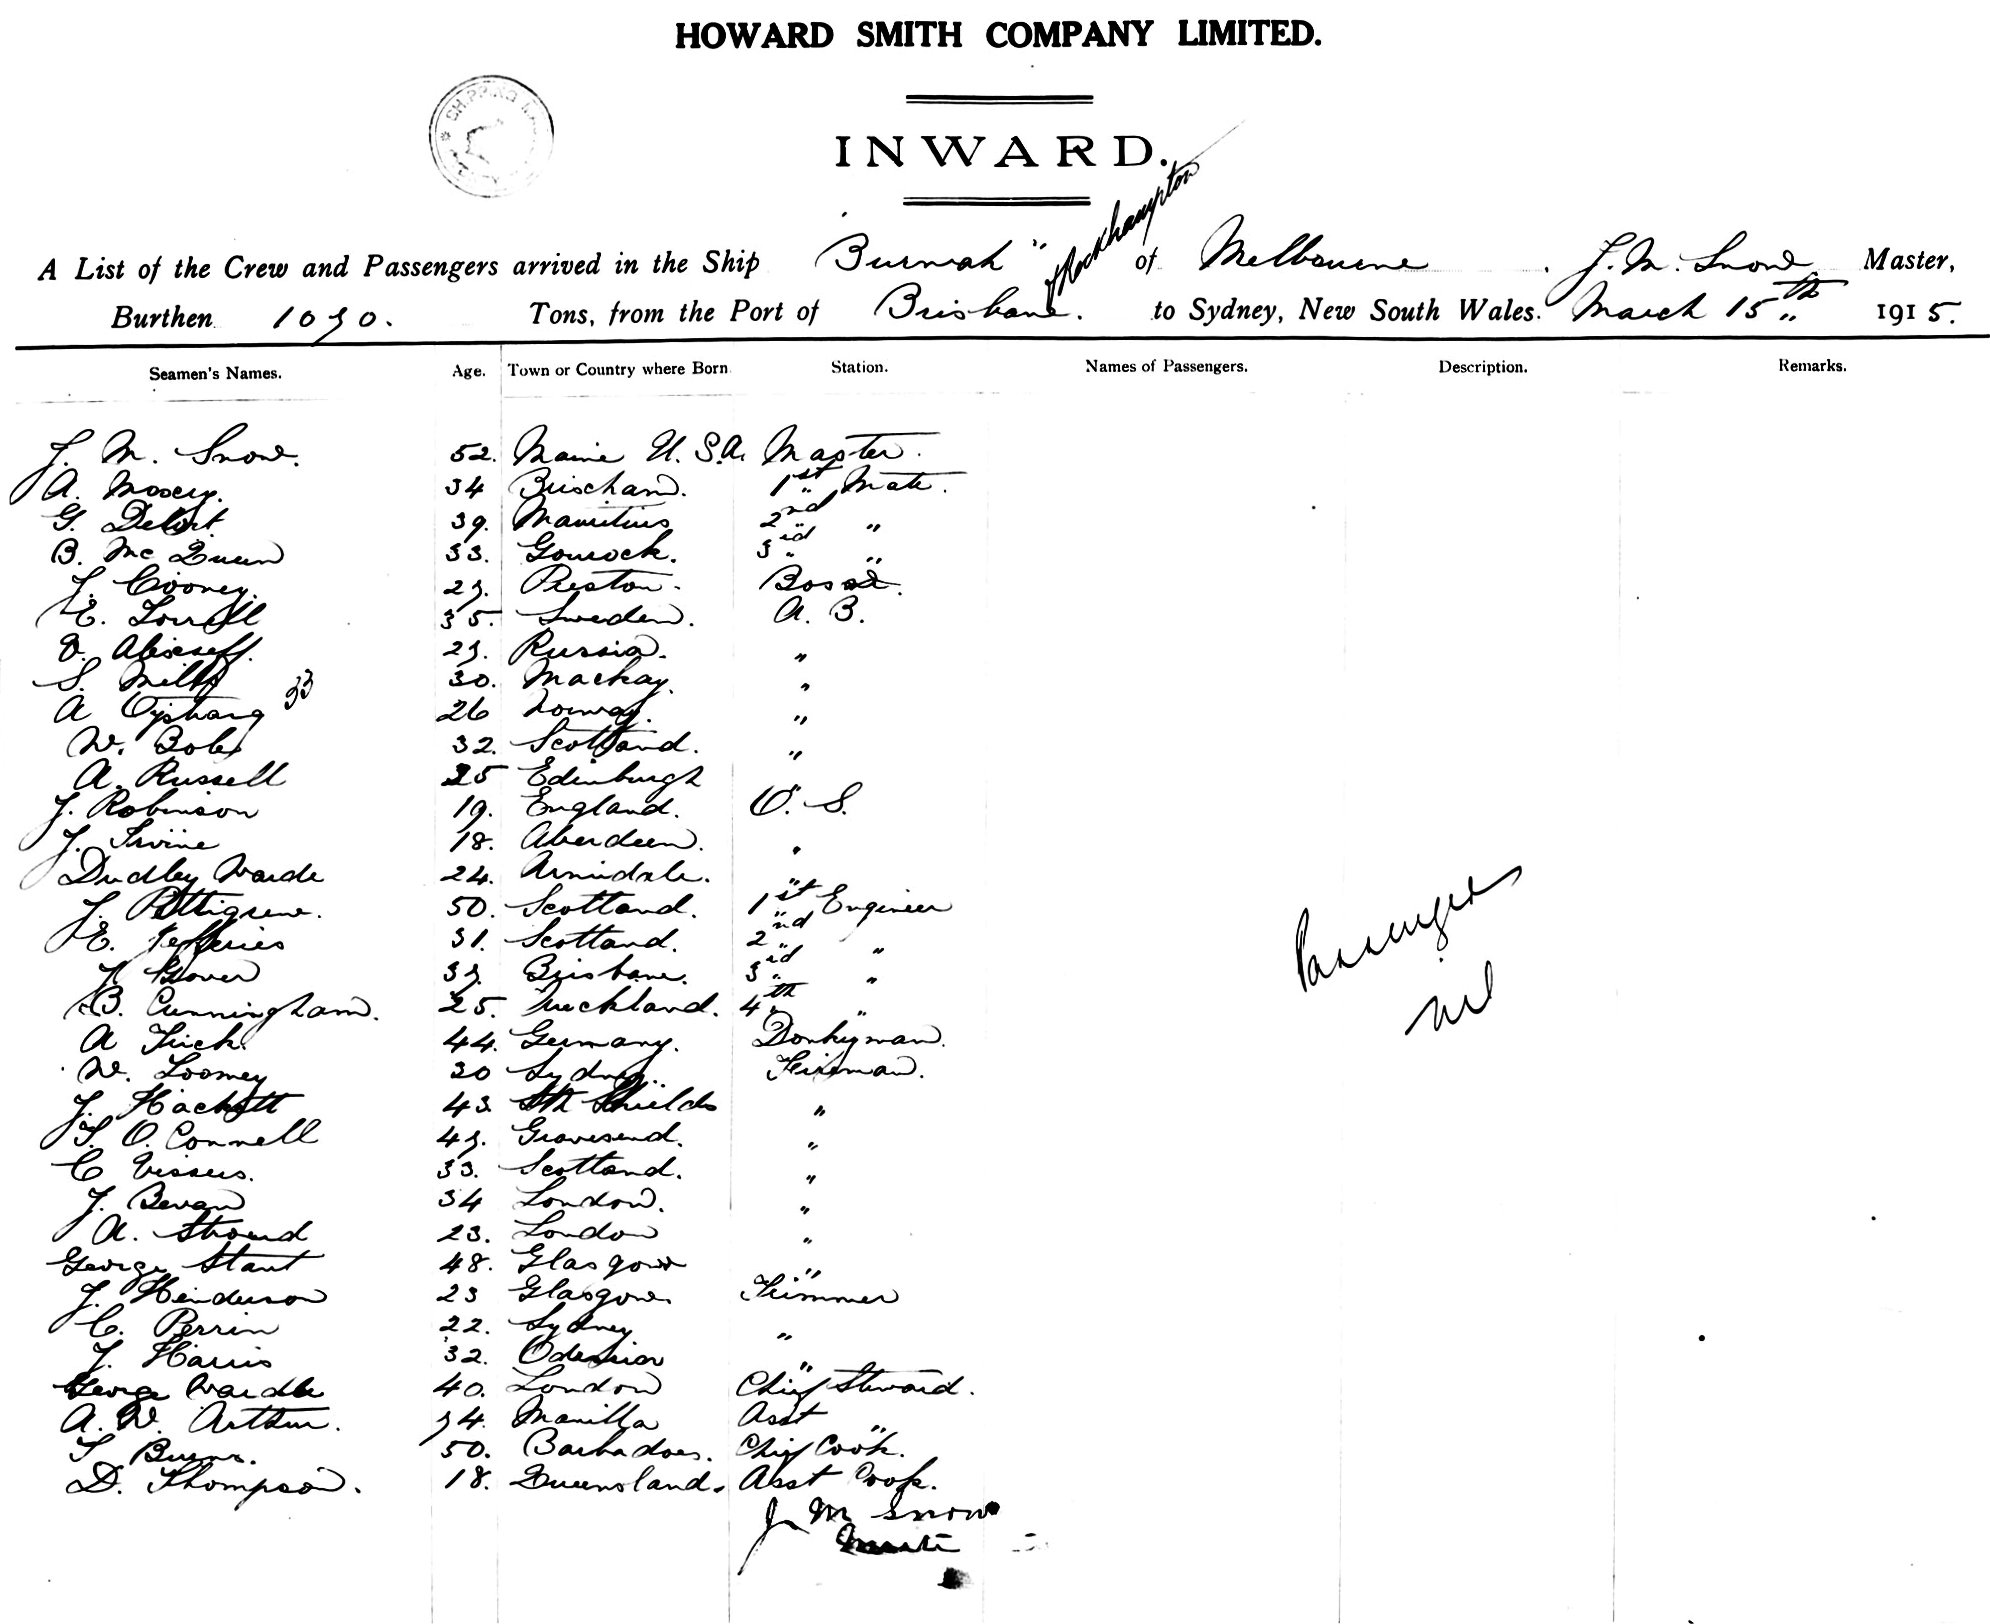 HOWARD SMITH COMPANY LIMITED.
INWARD.
A List of the Crew and Passengers arrived in the Ship Burwah " Rockhampton of Melbourne. J. M. Snow Master,
Burthen 1090. Tons, from the Port of Brisbane. to Sydney, New South Wales. March 15th 1915.
Seamen's Names. Age. Town or Country where Born Station. Names of Passengers. Description. Remarks.
J. M. Snow. 52. Maine U.S.A. Master.
A. 34 Brixham. 1st Mate.
G. 39. Mauritius 2nd "
B. McQueen 33. Gourock. 3rd "
J. Cooney. 29. Preston. Bosn.
E. 35. Sweden. A. B.
29. Russia. "
S. Mills 30. Mackay. "
A 26 Norway. "
33
W. 32. Scotland. "
A. Russell 25 Edinburgh "
J. Robinson 19. England. O. S.
J. Irvine 18. Aberdeen. "
Dudley Warde 24. Armidale. "
J. Pettigrew. 50. Scotland. 1st Engineer
E. Jefferies 31. Scotland. 2nd "
J. Glover 39. Brisbane. 3rd "
B. Cunningham. 25. Auckland. 4th "
A 44. Germany. Donkyman.
W. Loomey 30 Sydney. Fireman.
J. Hackett 43 Sth Shields "
T. O. Connell 49. Gravesend. "
C 33. Scotland. "
J. Bevan 34 London. "
A. Stroud 23. London "
George Stant 48. Glasgow "
J. Henderson 23 Glasgow Trimmer
C. Perrin 22. Sydney "
J. Harris 32. Odessia "
George Wardle 40. London Chief Steward.
A. W. Arthur. 34. Manilla Asst "
T Burns. 50. Barbadoes. Chief Cook.
D. Thompson. 18. Queensland. Asst Cook.
Passengers
Nil
J M Snow